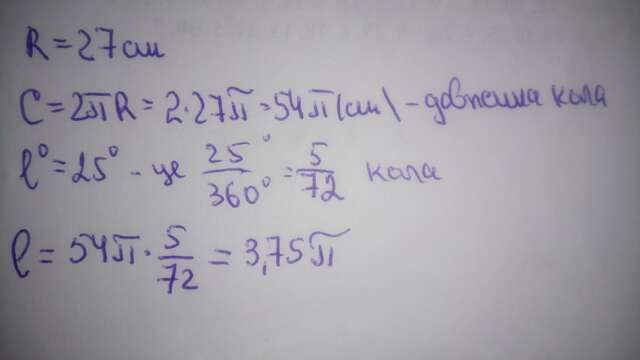 R = 27 см
C = 2πR = 2·27π = 54π (см) – довжина кола
l° = 25° – це 25°/360° = 5/72 кола
l = 54π · 5/72 = 3,75π